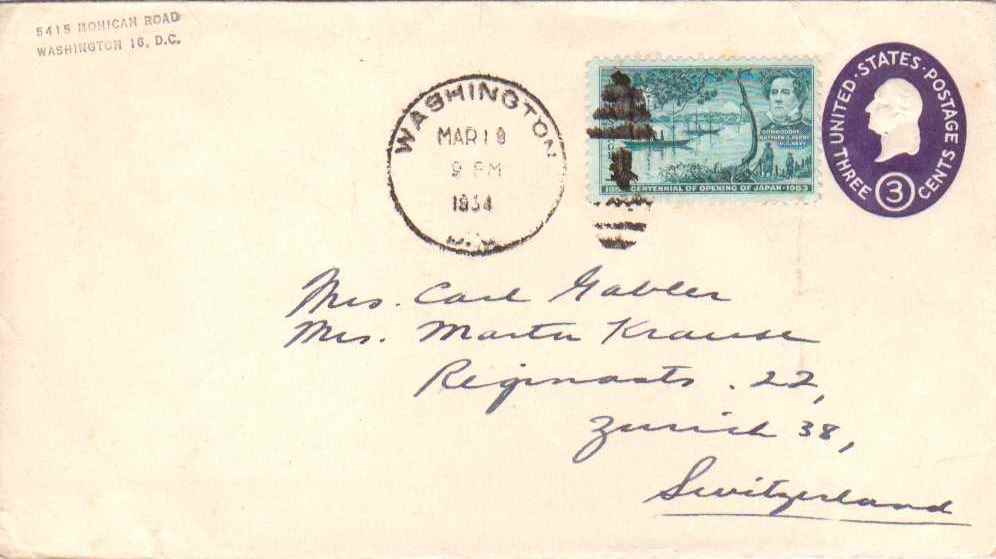 5415 MOHICAN ROAD
WASHINGTON 16, D.C.
WASHINGTON
MAR 19
9 PM
1954
D.C.
COMMODORE
MATTHEW C. PERRY
U.S. NAVY
CENTENNIAL OF OPENING OF JAPAN · 1953
UNITED · STATES · POSTAGE
THREE 3 CENTS
Mrs. Carl Gabler
Mrs. Marta Krause
22,
Zurich 38,
Switzerland